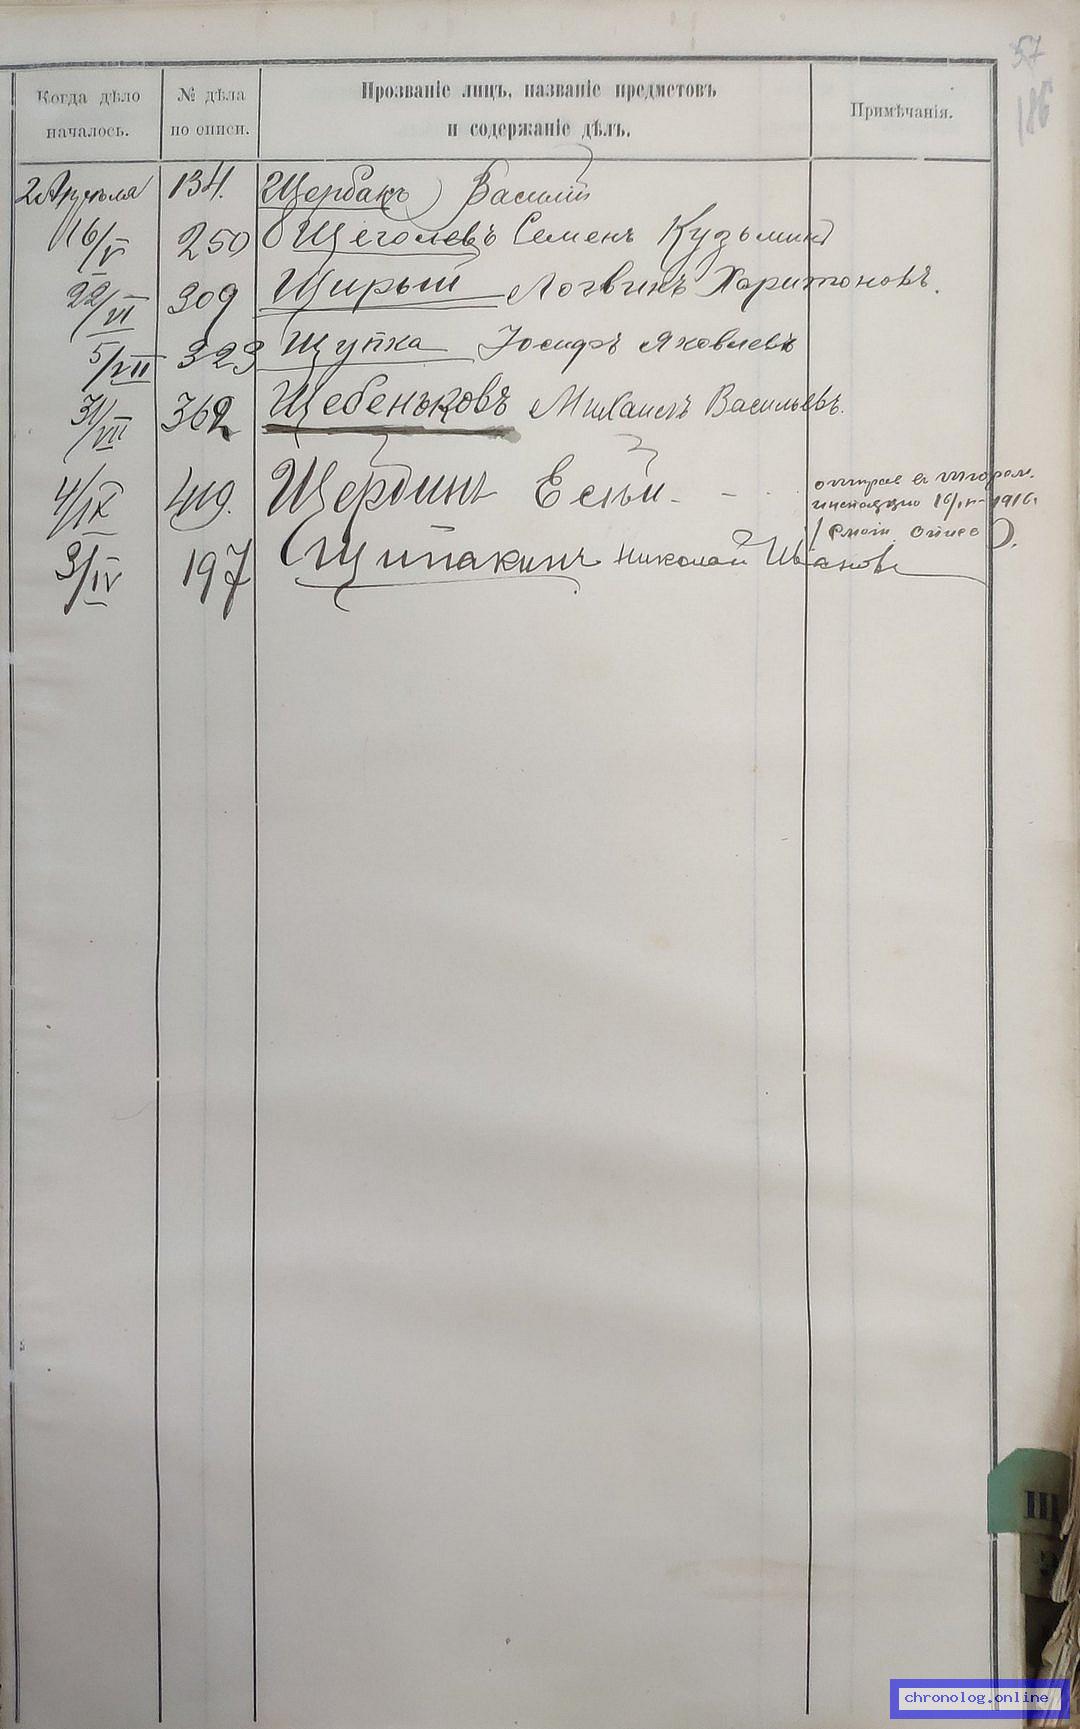 57
186
Когда дѣло
началось.
№ дѣла
по описи.
Прозваніе лицъ, названіе предметовъ
и содержаніе дѣлъ.
Примѣчанія.
2 Апрѣля 134. Щербакъ Василій
16/V 250 Щеголевъ Семенъ Кузьминъ
22/VI 309 Щирый Логвинъ Харитоновъ.
5/VII 323 Щупка Іосифъ Яковлевъ
31/VII 362 Щебеньковъ Михаилъ Васильевъ.
4/IX 419. Щербинъ Есѣй
16/IV 1916.
3/IV 197 Щипакинъ Николай Иванов
Щ
Э
chronolog.online